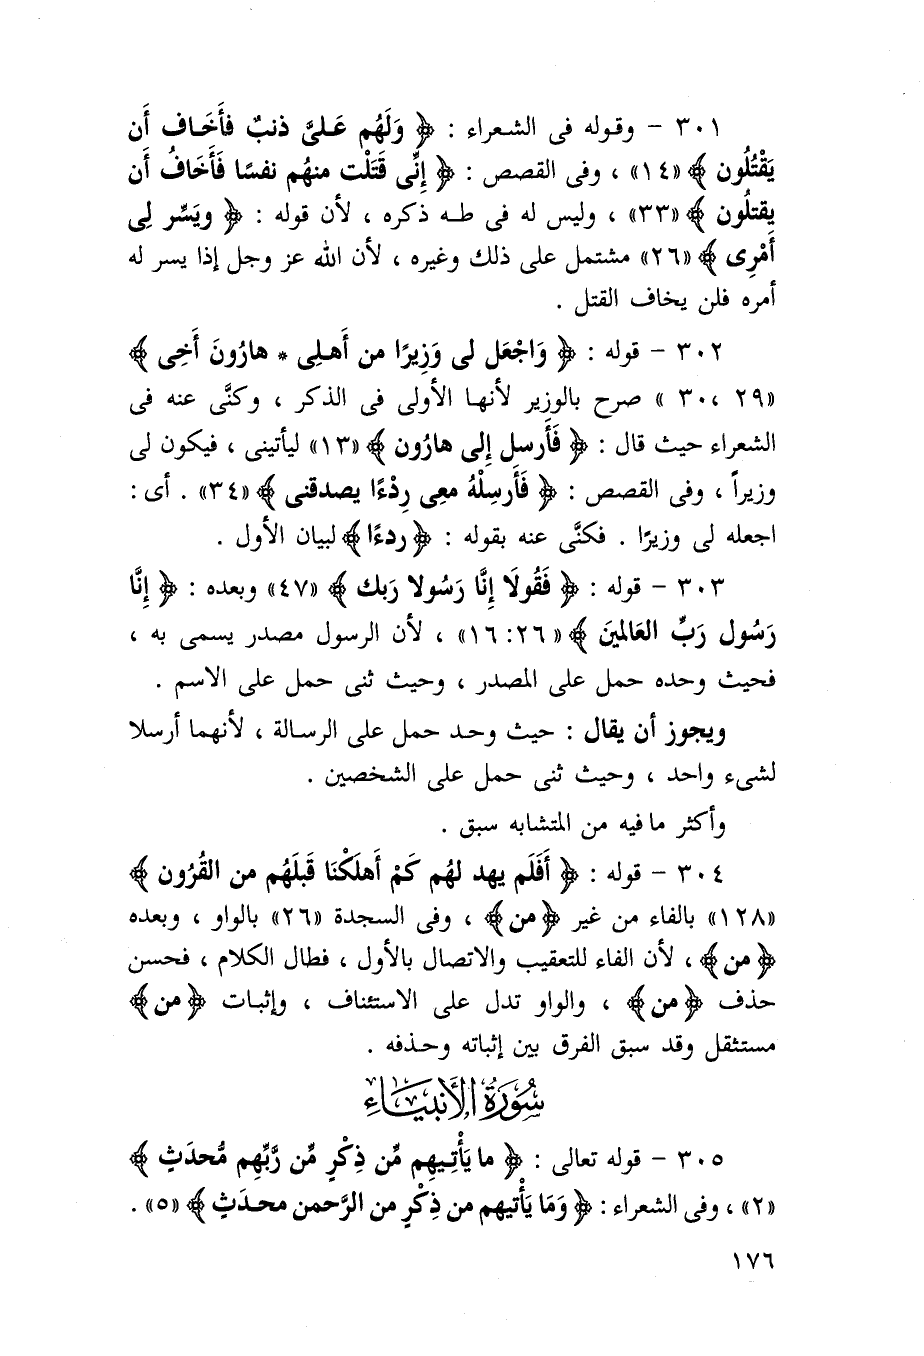 ٣٠١ – وقوله فى الشعراء : ﴿ وَلَهُم عَلىَّ ذنبٌ فأَخَاف أَن
يَقْتُلُون ﴾ «١٤» ، وفى القصص : ﴿ إِنِّى قَتَلْت منهُم نفسًا فَأَخَافُ أَن
يقتلُون ﴾ «٣٣» ، وليس له فى طه ذكره ، لأن قوله : ﴿ ويَسِّر لِى
أَمْرِى ﴾ «٢٦» مشتمل على ذلك وغيره ، لأن الله عز وجل إذا يسر له
أمره فلن يخاف القتل .
٣٠٢ – قوله : ﴿ وَاجْعَل لى وَزِيرًا من أَهلِى * هارُونَ أَخِى ﴾
«٢٩ ،٣٠ » صرح بالوزير لأنها الأولى فى الذكر ، وكنَّى عنه فى
الشعراء حيث قال : ﴿ فَأَرسل إِلى هارُون ﴾ «١٣» ليأتينى ، فيكون لى
وزيراً ، وفى القصص : ﴿ فَأَرسِلْهُ معِى رِدْءًا يصدقنى ﴾ «٣٤» . أى :
اجعله لى وزيرًا . فكنَّى عنه بقوله : ﴿ردءًا﴾ لبيان الأول .
٣٠٣ – قوله : ﴿ فَقُولَا إِنَّا رَسُولا رَبك ﴾ «٤٧» وبعده : ﴿ إِنَّا
رَسُول رَبِّ العَالمينَ ﴾ «١٦:٢٦» ، لأن الرسول مصدر يسمى به ،
فحيث وحده حمل على المصدر ، وحيث ثنى حمل على الاسم .
ويجوز أن يقال : حيث وحد حمل على الرسالة ، لأنهما أرسلا
لشىء واحد ، وحيث ثنى حمل على الشخصين .
وأكثر ما فيه من المتشابه سبق .
٣٠٤ – قوله : ﴿ أَفَلَم يهد لهُم كَمْ أَهلَكْنَا قَبلَهُم من القُرُون ﴾
«١٢٨» بالفاء من غير ﴿من﴾ ، وفى السجدة «٢٦» بالواو ، وبعده
﴿من﴾ ، لأن الفاء للتعقيب والاتصال بالأول ، فطال الكلام ، فحسن
حذف ﴿من﴾ ، والواو تدل على الاستئناف ، وإثبات ﴿من﴾
مستثقل وقد سبق الفرق بين إثباته وحذفه .
سُورَةُ الأَنبيَاء
٣٠٥ – قوله تعالى : ﴿ ما يَأْتِيهِم مِّن ذِكْرٍ مِّن رَّبِّهِم مُّحدَثٍ ﴾
«٢» ، وفى الشعراء : ﴿ وَمَا يَأْتيهم من ذِكْرٍ من الرَّحمن محدَثٍ ﴾ «٥» .
١٧٦